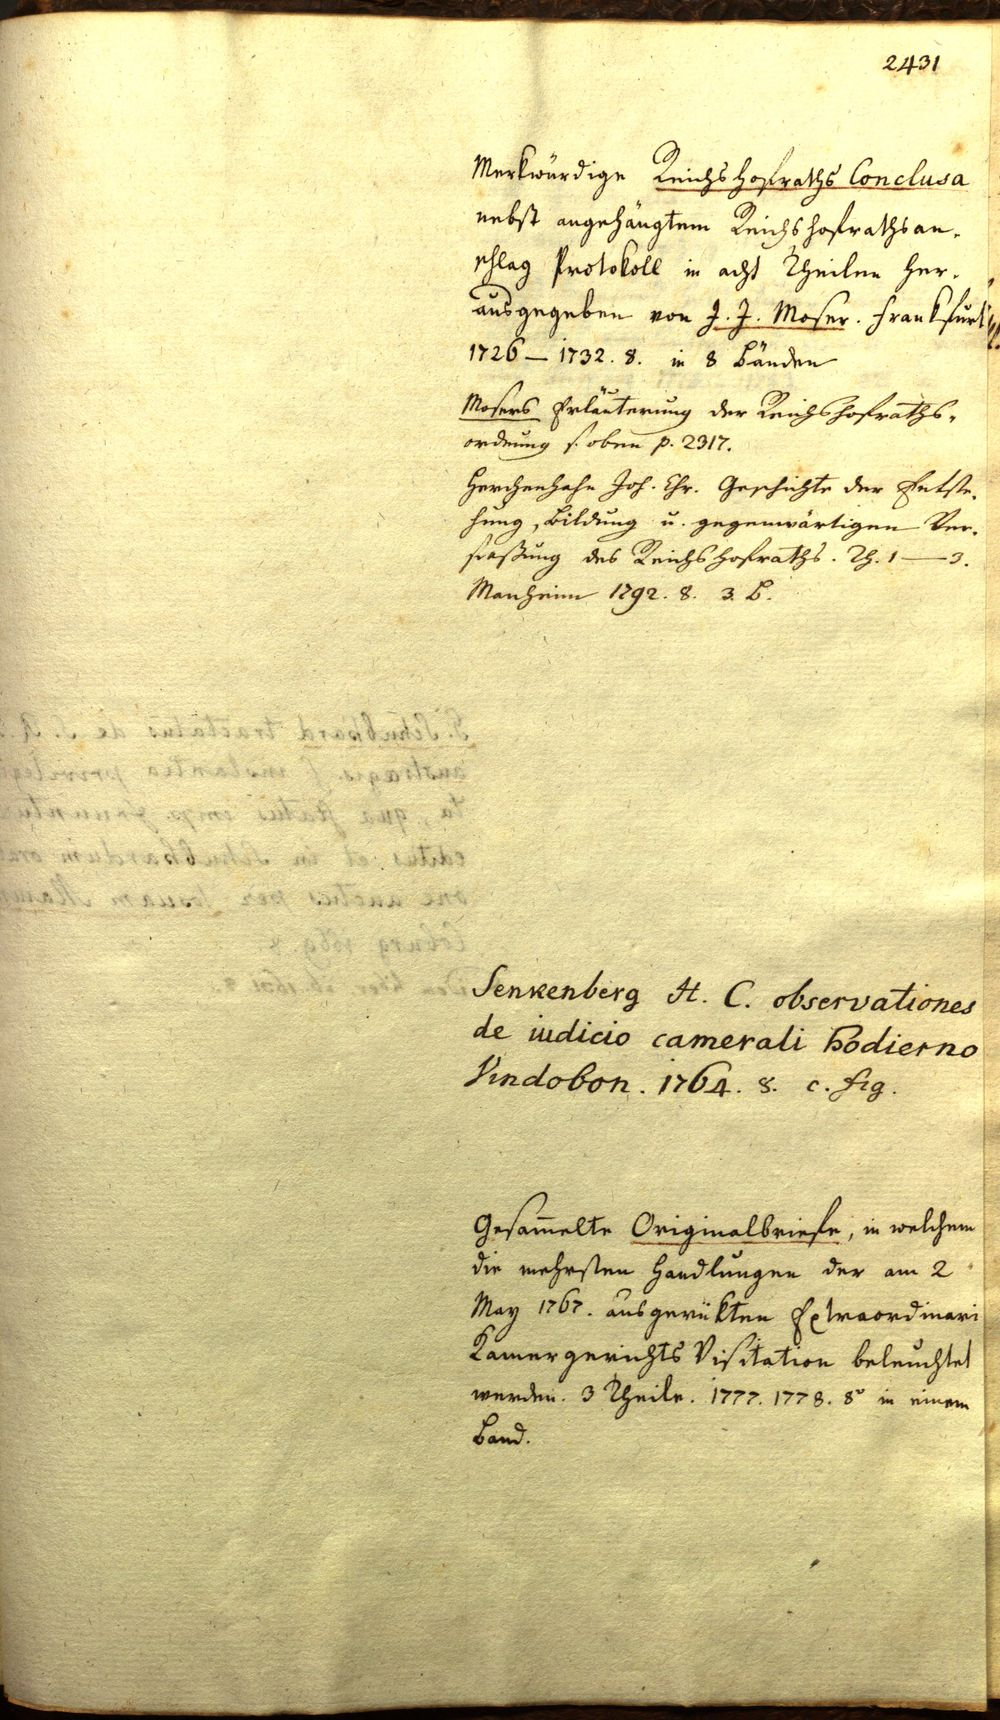 2431
Merkwürdige Reichshofraths Conclusa
nebst angehängtem Reichshofrathsan-
schlag Protokoll in acht Theilen her-
ausgegeben von J. J. Moser. Frankfurt
1726 — 1732. 8. in 8 Bänden
Mosers Erläuterung der Reichshofraths-
ordnung s. oben p. 2317.
Herchenhahn Joh. Chr. Geschichte der Entste-
hung, Bildung u. gegenwärtigen Ver-
faßung des Reichshofraths. Th. 1 — 3.
Manheim 1792. 8. 3. B.
Senkenberg H. C. observationes
de iudicio camerali hodierno
Vindobon. 1764. 8. c. fig.
Gesam̄elte Originalbriefe, in welchem
die mehrsten Handlungen der am 2
May 1767. ausgerükten Extraordinari
Kamergerichts Visitation beleuchtet
werden. 3 Theile. 1777. 1778. 8° in einem
Band.